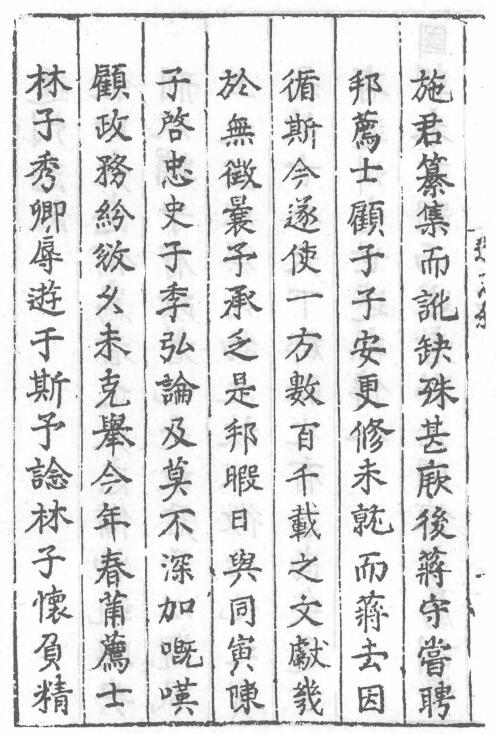 施君纂集而訛缺殊甚厥後蔣守嘗聘
邦薦士顧子子安更修未就而蔣去因
循斯今遂使一方數百千載之文獻幾
於無徵曩予承乏是邦暇日與同寅陳
子啓忠史子季弘論及莫不深加嘅嘆
顧政務紛紜久未克舉今年春莆薦士
林子秀卿辱遊于斯予諗林子懷負精